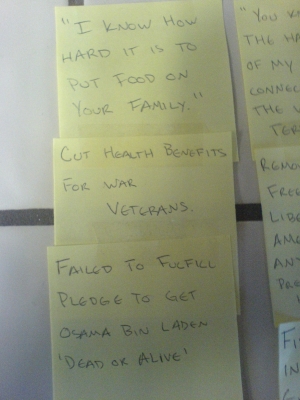 "I KNOW HOW
HARD IT IS TO
PUT FOOD ON
YOUR FAMILY."
CUT HEALTH BENEFITS
FOR WAR
VETERANS.
FAILED TO FULFILL
PLEDGE TO GET
OSAMA BIN LADEN
'DEAD OR ALIVE'
"YOU
THE
OF MY
CONNEC
THE
TER
REMO
FREE
LIBE
AM
ANY
PRE
FI
IN